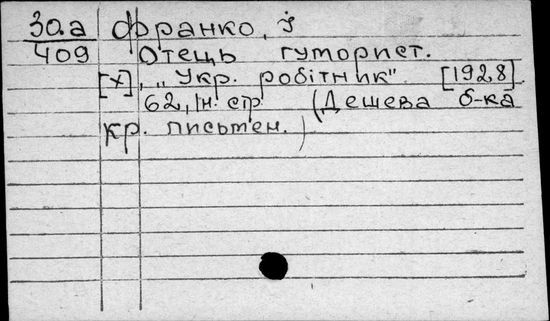 30.а Франко, І
409 Отець гуморист.
[Х], „Укр. робітник" [192,8]
62, н. стр (Дешева б-ка
кр. письмен.)